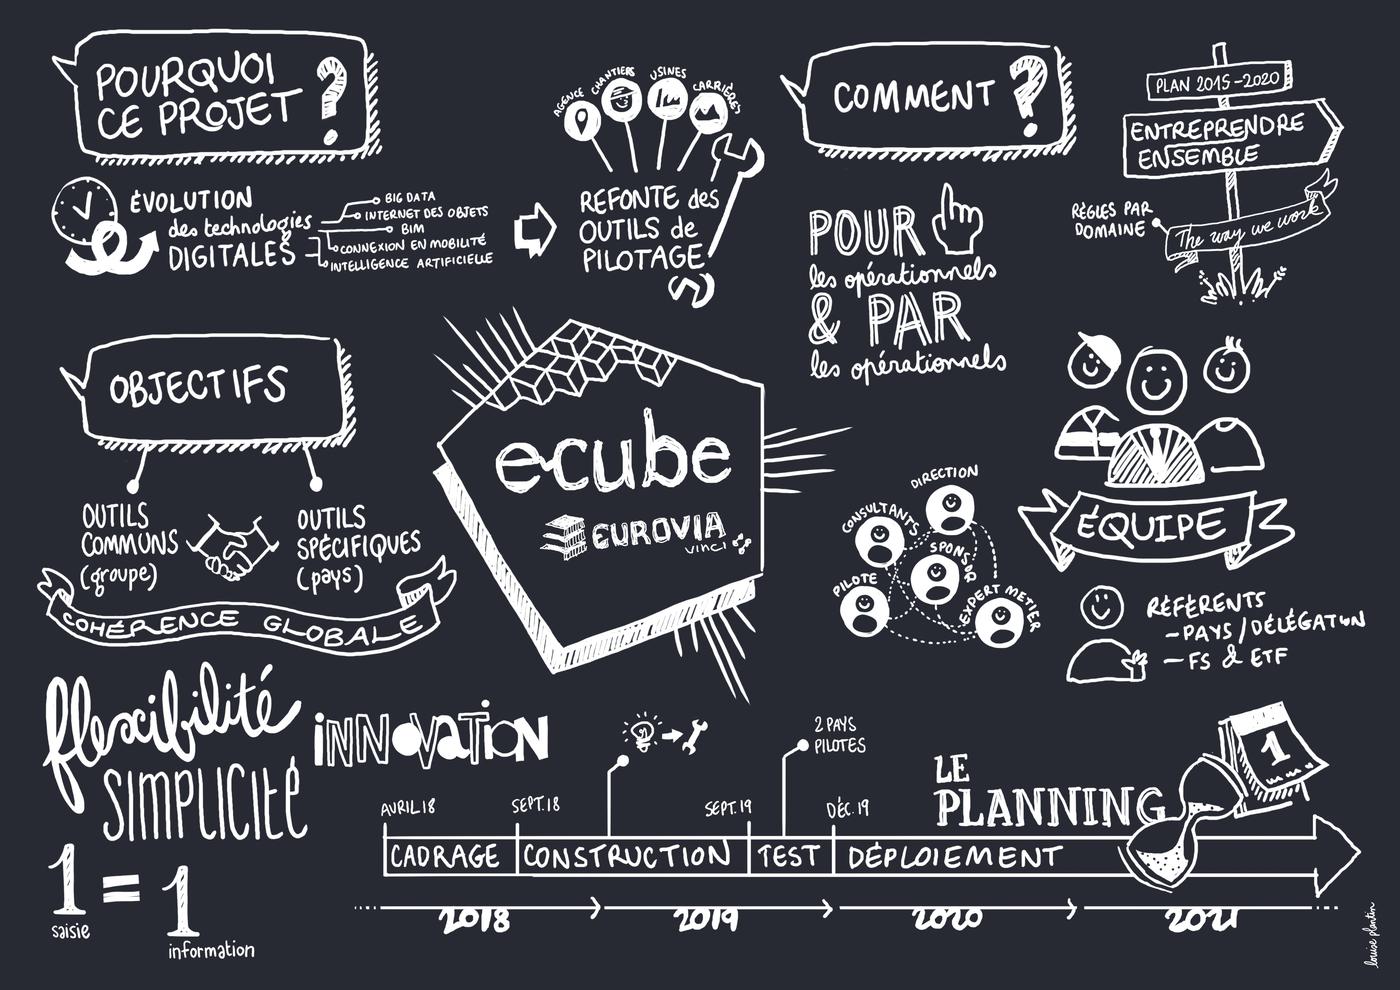 POURQUOI
CE PROJET ?
ÉVOLUTION
des technologies
DIGITALES
BIG DATA
INTERNET DES OBJETS
BIM
CONNEXION EN MOBILITÉ
INTELLIGENCE ARTIFICIELLE
AGENCE
CHANTIERS
USINES
CARRIÈRES
REFONTE des
OUTILS de
PILOTAGE
COMMENT ?
PLAN 2015-2020
ENTREPRENDRE
ENSEMBLE
RÈGLES PAR
DOMAINE
The way we work
POUR
les opérationnels
& PAR
les opérationnels
OBJECTIFS
OUTILS
COMMUNS
(groupe)
OUTILS
SPÉCIFIQUES
(pays)
COHÉRENCE GLOBALE
ecube
EUROVIA
VINCI
DIRECTION
CONSULTANTS
SPONSOR
PILOTE
EXPERT METIER
ÉQUIPE
RÉFÉRENTS
- PAYS / DÉLÉGATION
- FS & ETF
flexibilité
SIMPLICITÉ
INNOVATION
1 = 1
saisie
information
LE
PLANNING
1
2 PAYS
PILOTES
AVRIL 18
SEPT. 18
SEPT. 19
DÉC. 19
CADRAGE
CONSTRUCTION
TEST
DÉPLOIEMENT
2018
2019
2020
2021
louise plantin